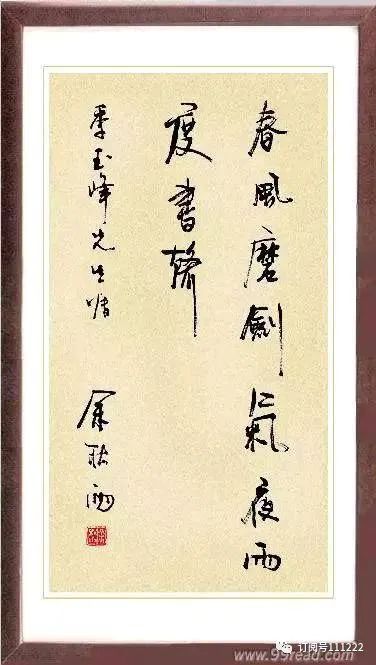 春風磨劍氣夜雨
度書聲
季玉峰先生嘱
余秋雨
www.99read.com
订阅号111222